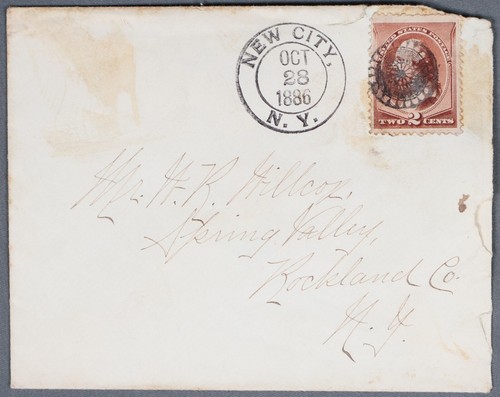 NEW CITY,
OCT
28
1886
N. Y.
UNITED STATES POSTAGE
TWO 2 CENTS
Mr. W. R. Willcox,
Spring Valley,
Rockland Co.
N. Y.